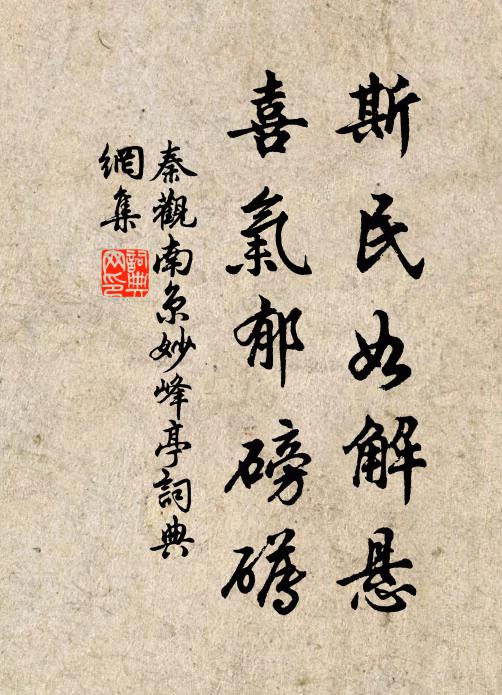 斯民如解悬
喜氣郁磅礴
秦觀南京妙峰亭詞典
網集
詞典
网印